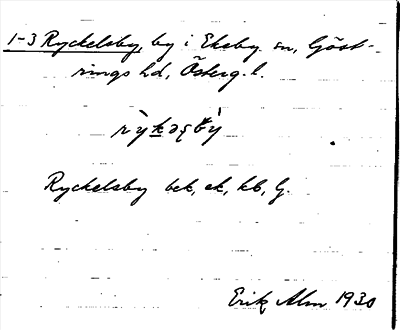 1-3 Ryckelsby, by i Ekeby sn, Göst-
rings hd, Österg. l.
rỳkəʂbý
Ryckelsby bek, ek, kb, G.
Erik Alm 1930